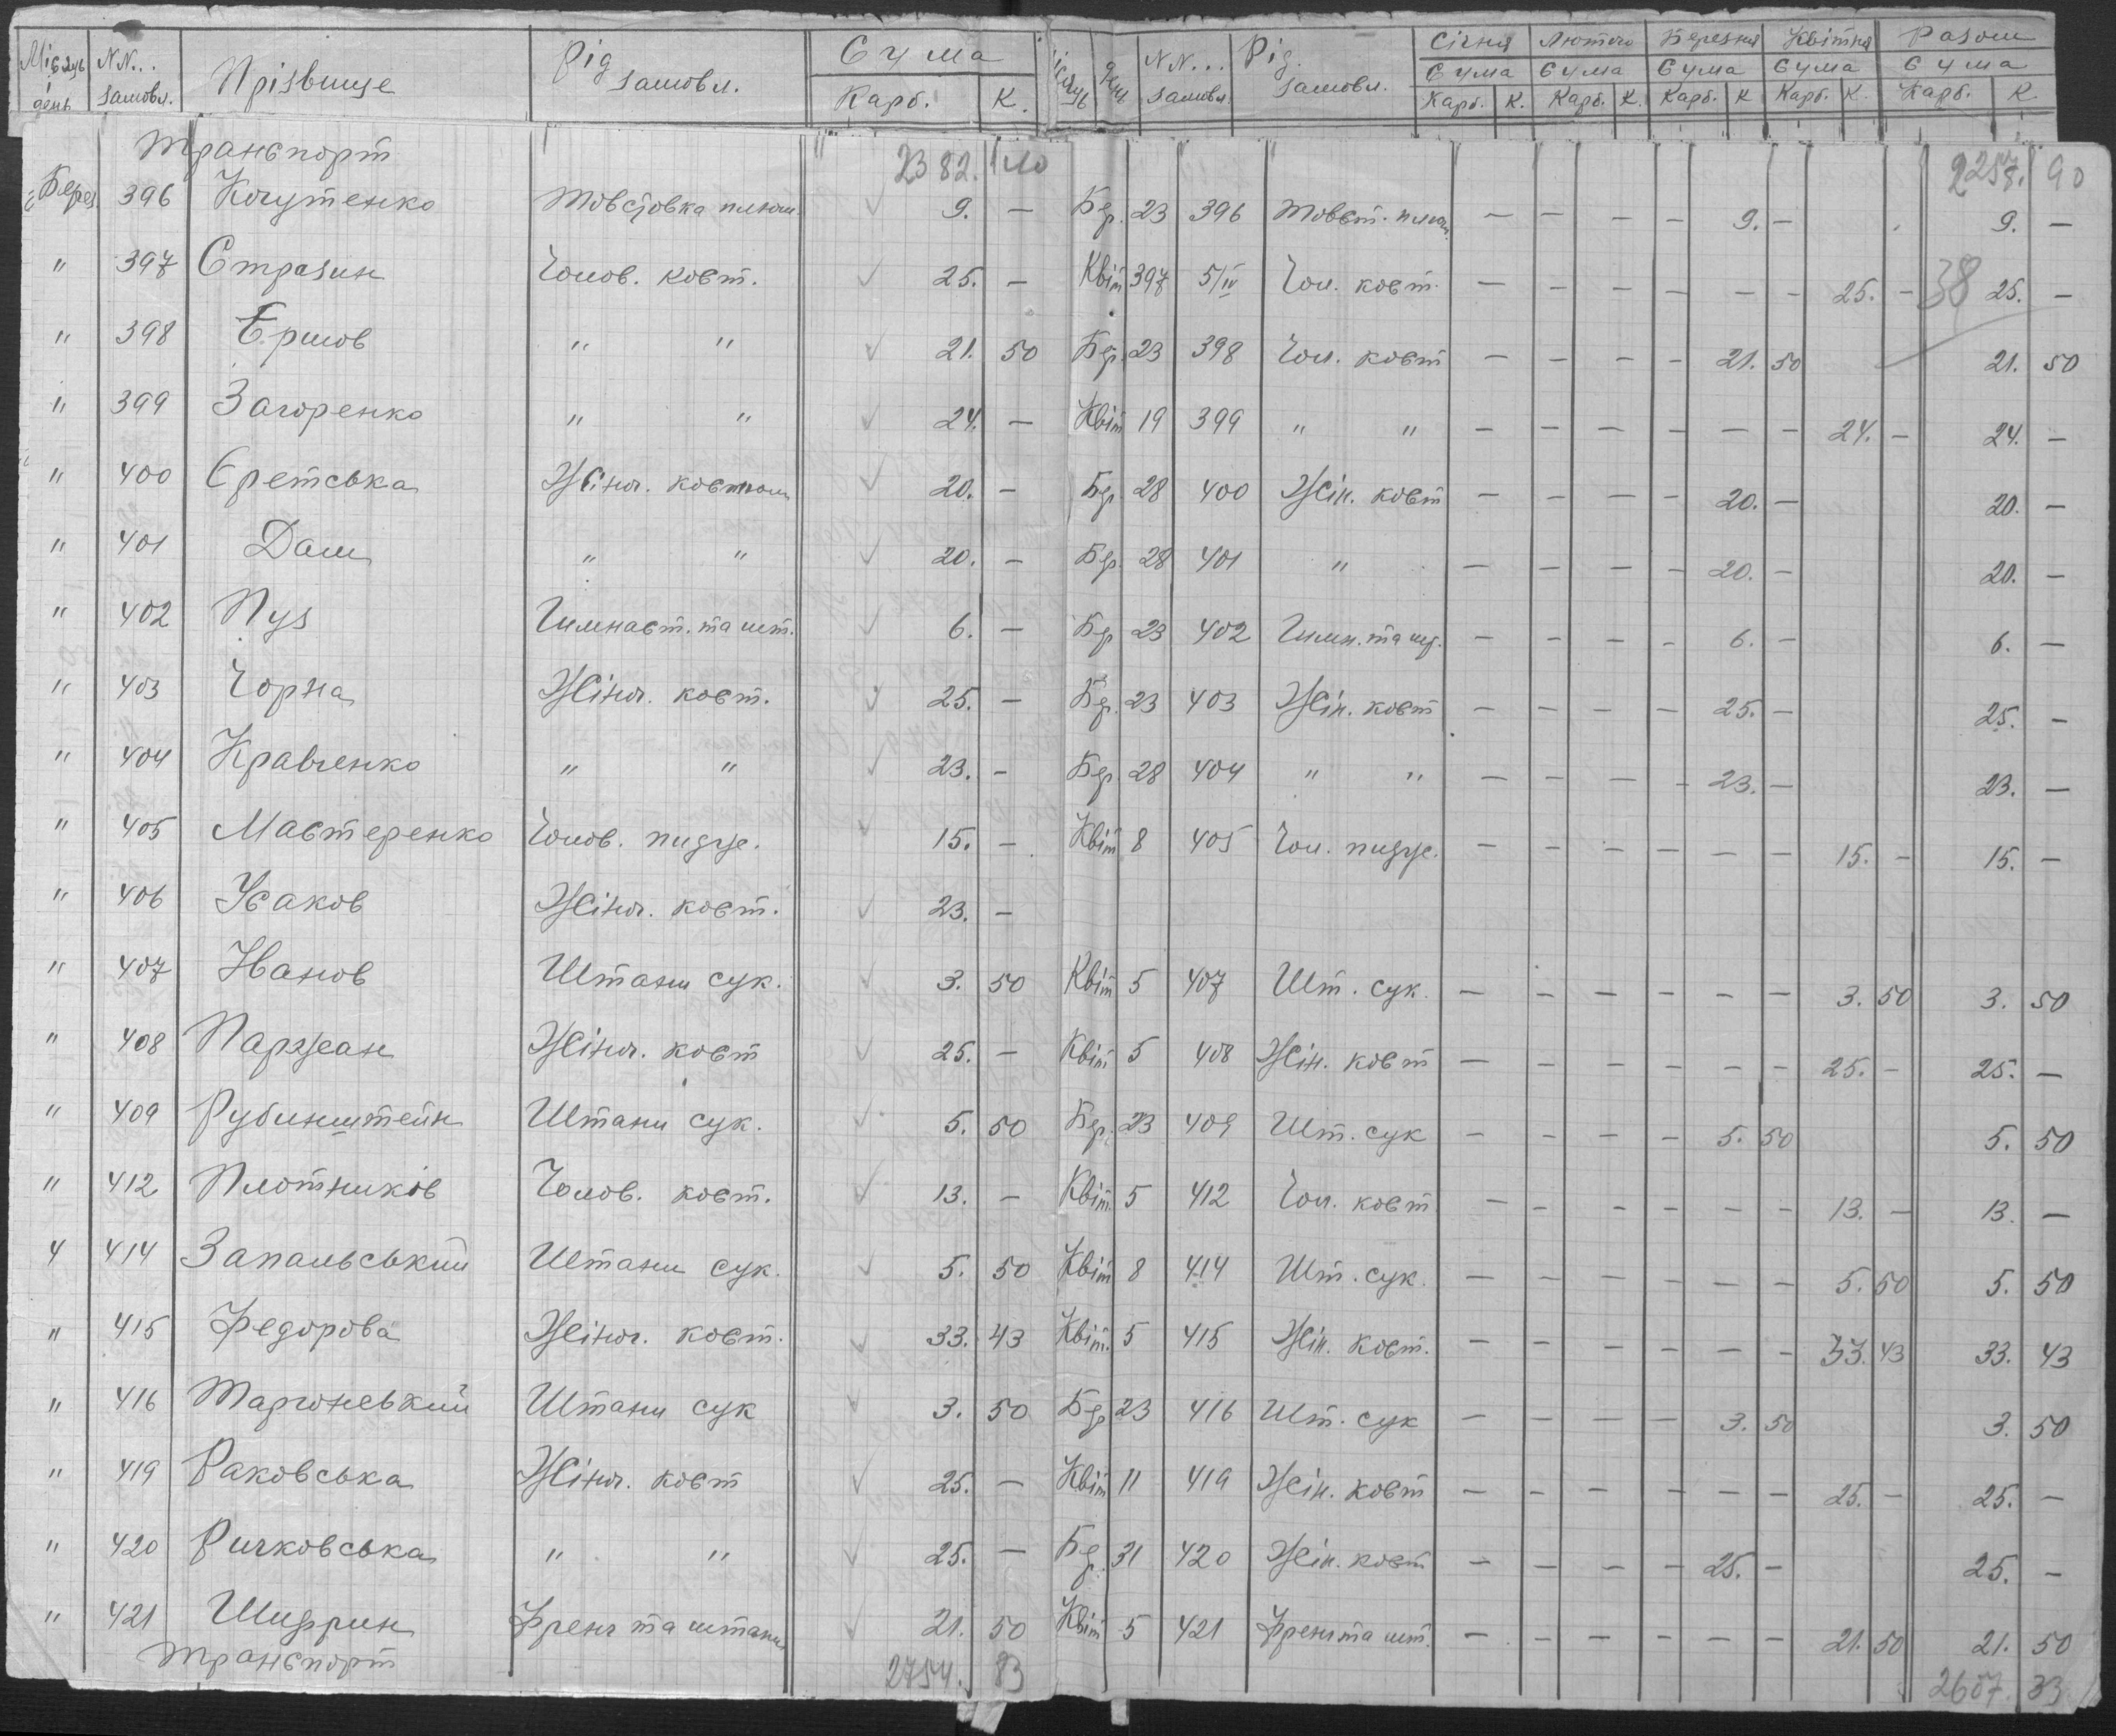 Місяць день | NN... замовл. | Прізвище | Рід замовл. | Сума Карб. К. | Місяць | день | NN... замовл. | Рід. замовл. | Січня Сума Карб. К. | Лютого Сума Карб. К. | Березня Сума Карб. К | Квітня Сума Карб. К. | Разом Сума Карб. К.
Транспорт 2382. 40 90
Берез. 396 Кочутенко Товстовка 9. — Бер. 23 396 Товст. — — — — 9. — 9. —
" 397 Стразин Чолов. кост. 25. — Квіт 397 5/IV Чол. кост. — — — — — — 25. — 38 25. —
" 398 Ершов " " 21. 50 Бер. 23 398 Чол. кост — — — — 21. 50 21. 50
" 399 Загоренко " " 24. — Квіт 19 399 " " — — — — — — 24. — 24. —
" 400 Єретська Жіноч. костюм 20. — Бер 28 400 Жін. кост — — — — 20. — 20. —
" 401 Даш " " 20. — Бер. 28 401 " — — — — 20. — 20. —
" 402 Пуз Гимнаст. та шт. 6. — Бер 23 402 Гимн. та шт. — — — — 6. — 6. —
" 403 Чорна Жіноч. кост. 25. — Бер. 23 403 Жін. кост — — — — 25. — 25. —
" 404 Кравченко " " 23. — Бер. 28 404 " " — — — — 23. — 23. —
" 405 Мастеренко Чолов. пидже. 15. — Квіт 8 405 Чол. пидже. — — — — — — 15. — 15. —
" 406 Усаков Жіноч. кост. 23. —
" 407 Іванов Штани сук. 3. 50 Квіт 5 407 Шт. сук. — — — — — — 3. 50 3. 50
" 408 Паржеан Жіноч. кост 25. — Квіт 5 408 Жін. кост — — — — — — 25. — 25. —
" 409 Рубинштейн Штани сук. 5. 50 Бер. 23 409 Шт. сук — — — — 5. 50 5. 50
" 412 Плотніков Чолов. кост. 13. — Квіт. 5 412 Чол. кост — — — — — — 13. — 13. —
" 414 Запальський Штани сук. 5. 50 Квіт 8 414 Шт. сук. — — — — — — 5. 50 5. 50
" 415 Федорова Жіноч. кост. 33. 43 Квіт. 5 415 Жін. кост. — — — — — — 33. 43 33. 43
" 416 Штани сук 3. 50 Бер 23 416 Шт. сук — — — — 3. 50 3. 50
" 419 Раковська Жіноч. кост 25. — Квіт 11 419 Жін. кост — — — — — — 25. — 25. —
" 420 Ричковська " " 25. — Бер. 31 420 Жін. кост — — — — 25. — 25. —
" 421 Шифрин Френч та штани 21. 50 Квіт 5 421 Френч та шт. — — — — — — 21. 50 21. 50
Транспорт 2754. 83 2607. 33